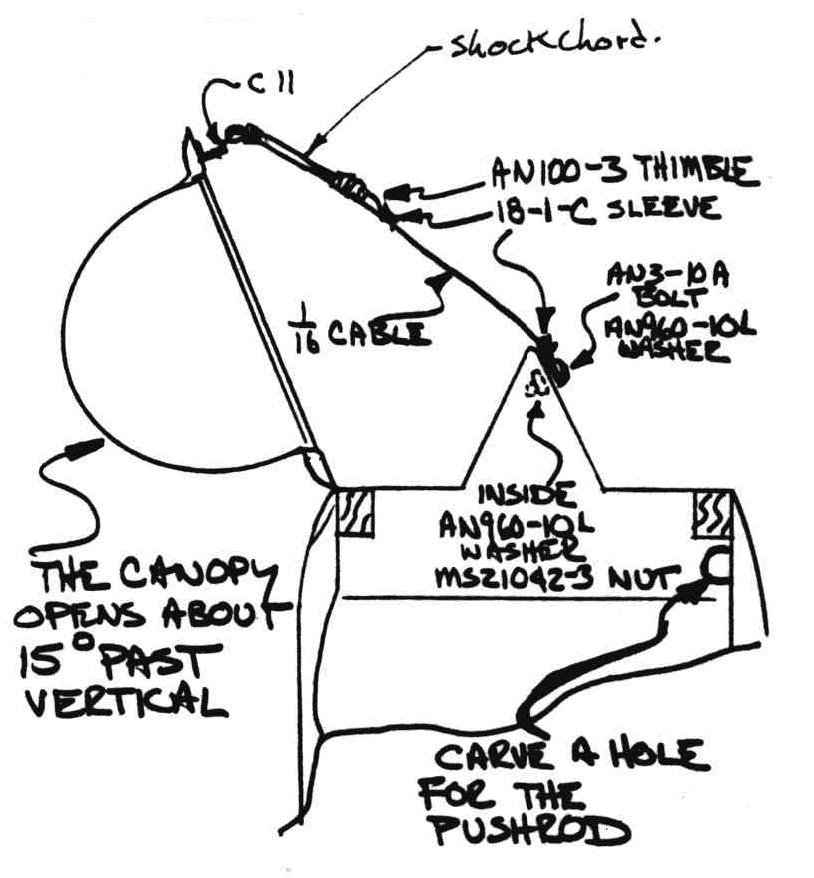 shockchord.
C11
AN100-3 THIMBLE
18-1-C SLEEVE
AN3-10A
BOLT
AN960-10L
WASHER
1/16 CABLE
INSIDE
AN960-10L
WASHER
MS21042-3 NUT
THE CANOPY
OPENS ABOUT
15° PAST
VERTICAL
CARVE A HOLE
FOR THE
PUSHROD